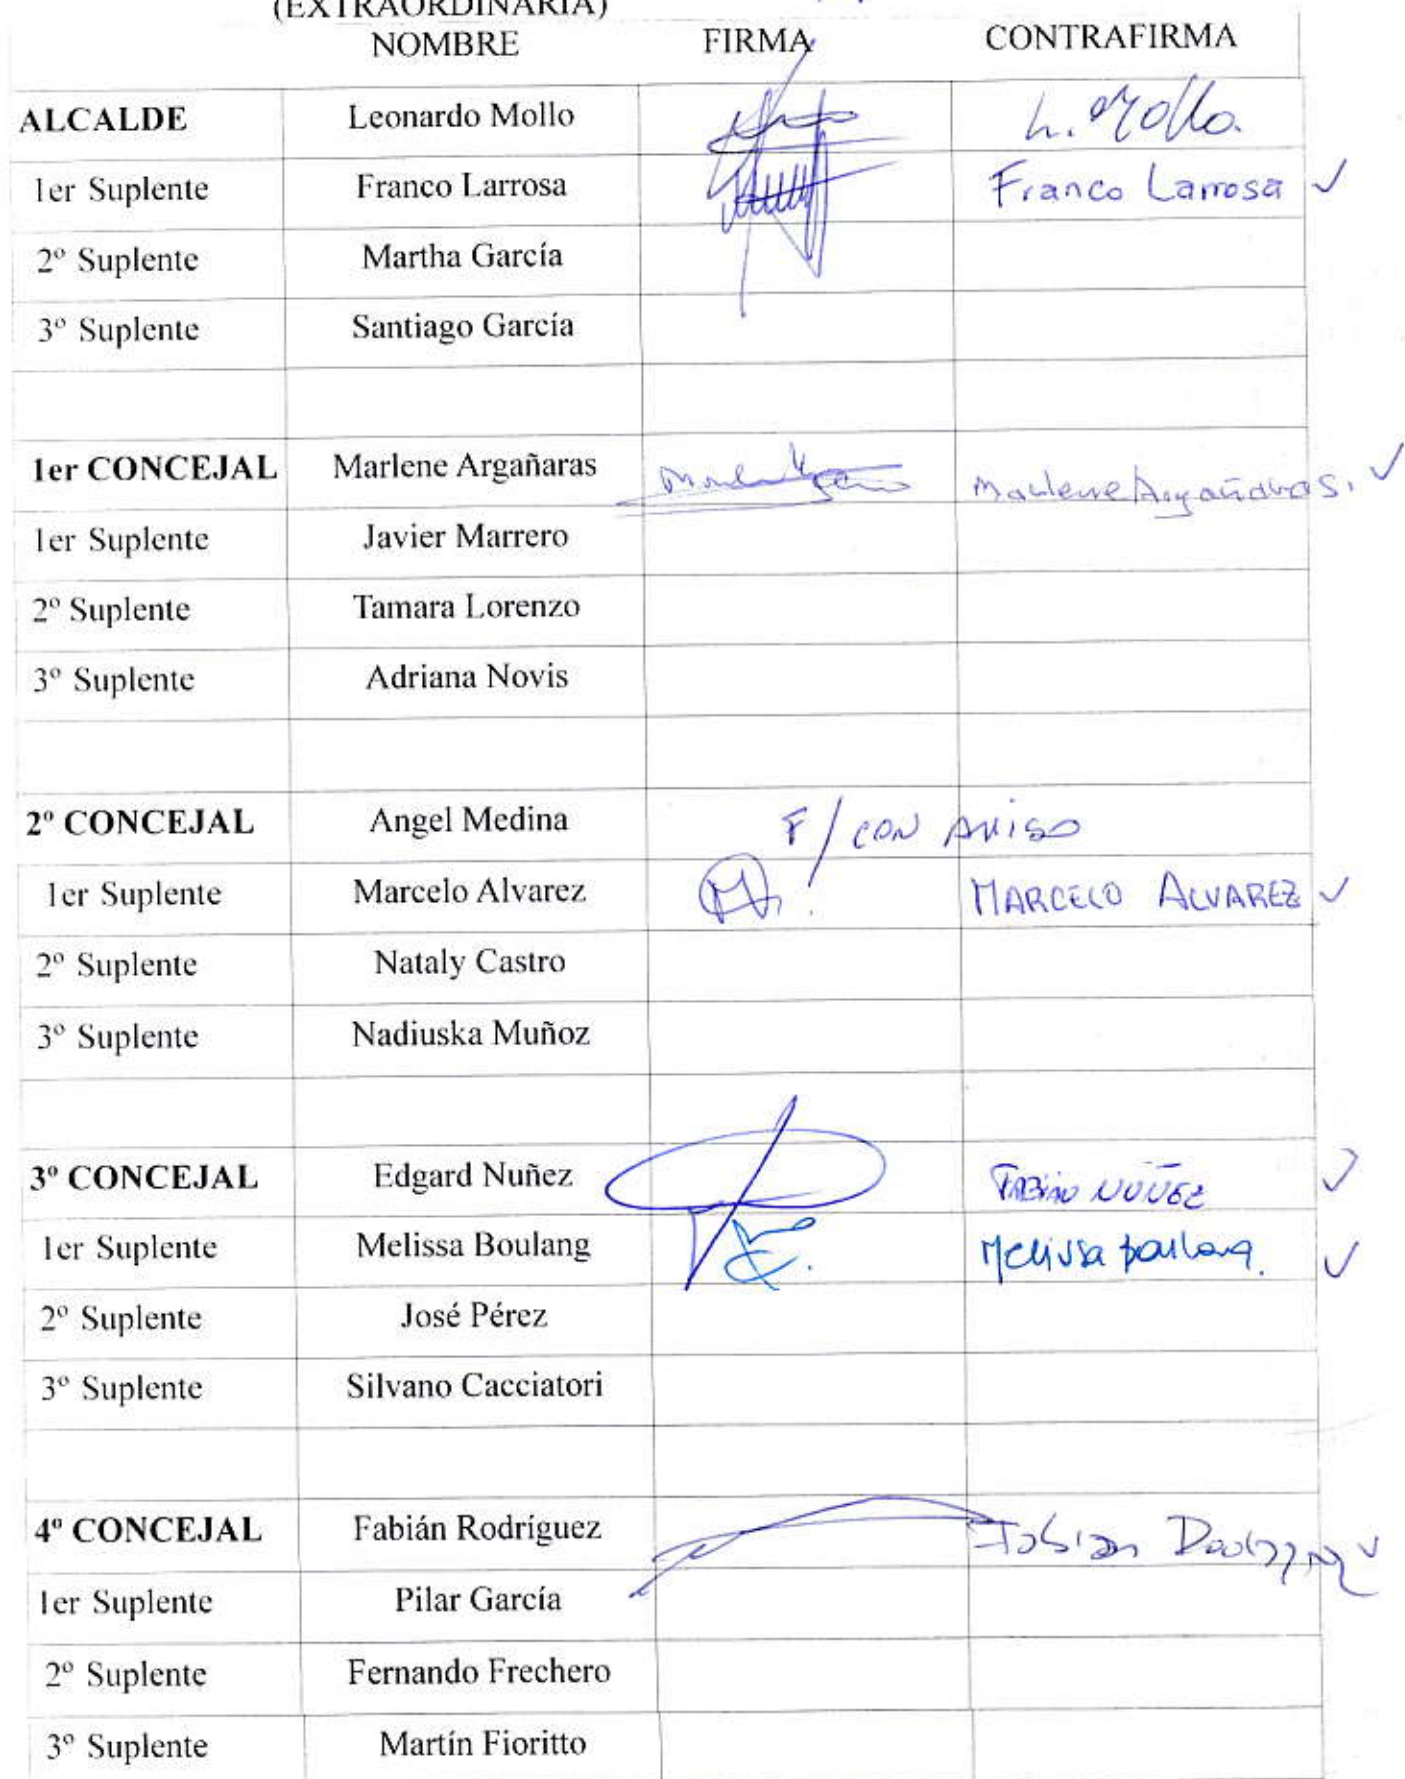 (EXTRAORDINARIA)
NOMBRE FIRMA CONTRAFIRMA
ALCALDE Leonardo Mollo L. Mollo.
1er Suplente Franco Larrosa Franco Larrosa ✓
2º Suplente Martha García
3º Suplente Santiago García
1er CONCEJAL Marlene Argañaras Marlene Argañaras. ✓
1er Suplente Javier Marrero
2º Suplente Tamara Lorenzo
3º Suplente Adriana Novis
2º CONCEJAL Angel Medina F/ CON AVISO
1er Suplente Marcelo Alvarez MARCELO ALVAREZ ✓
2º Suplente Nataly Castro
3º Suplente Nadiuska Muñoz
3º CONCEJAL Edgard Nuñez FABIÁN NUÑEZ ✓
1er Suplente Melissa Boulang Melissa Boulang. ✓
2º Suplente José Pérez
3º Suplente Silvano Cacciatori
4º CONCEJAL Fabián Rodríguez Fabian Rodríguez ✓
1er Suplente Pilar García
2º Suplente Fernando Frechero
3º Suplente Martín Fioritto